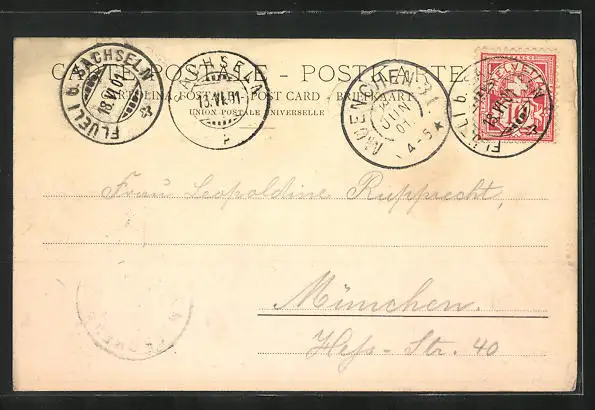 CARTE POSTALE - POSTKARTE
CARTOLINA POSTALE POST CARD - BRIEFKARTE
UNION POSTALE UNIVERSELLE
FLÜELI b. SACHSELN
18.VI.01
SACHSELN
MUENCHEN 31
JUN
01
4-5 ★
FLÜELI b.
HELVETIA
10
Frau Leopoldine Rupprecht,
München.
Heß-Str. 40